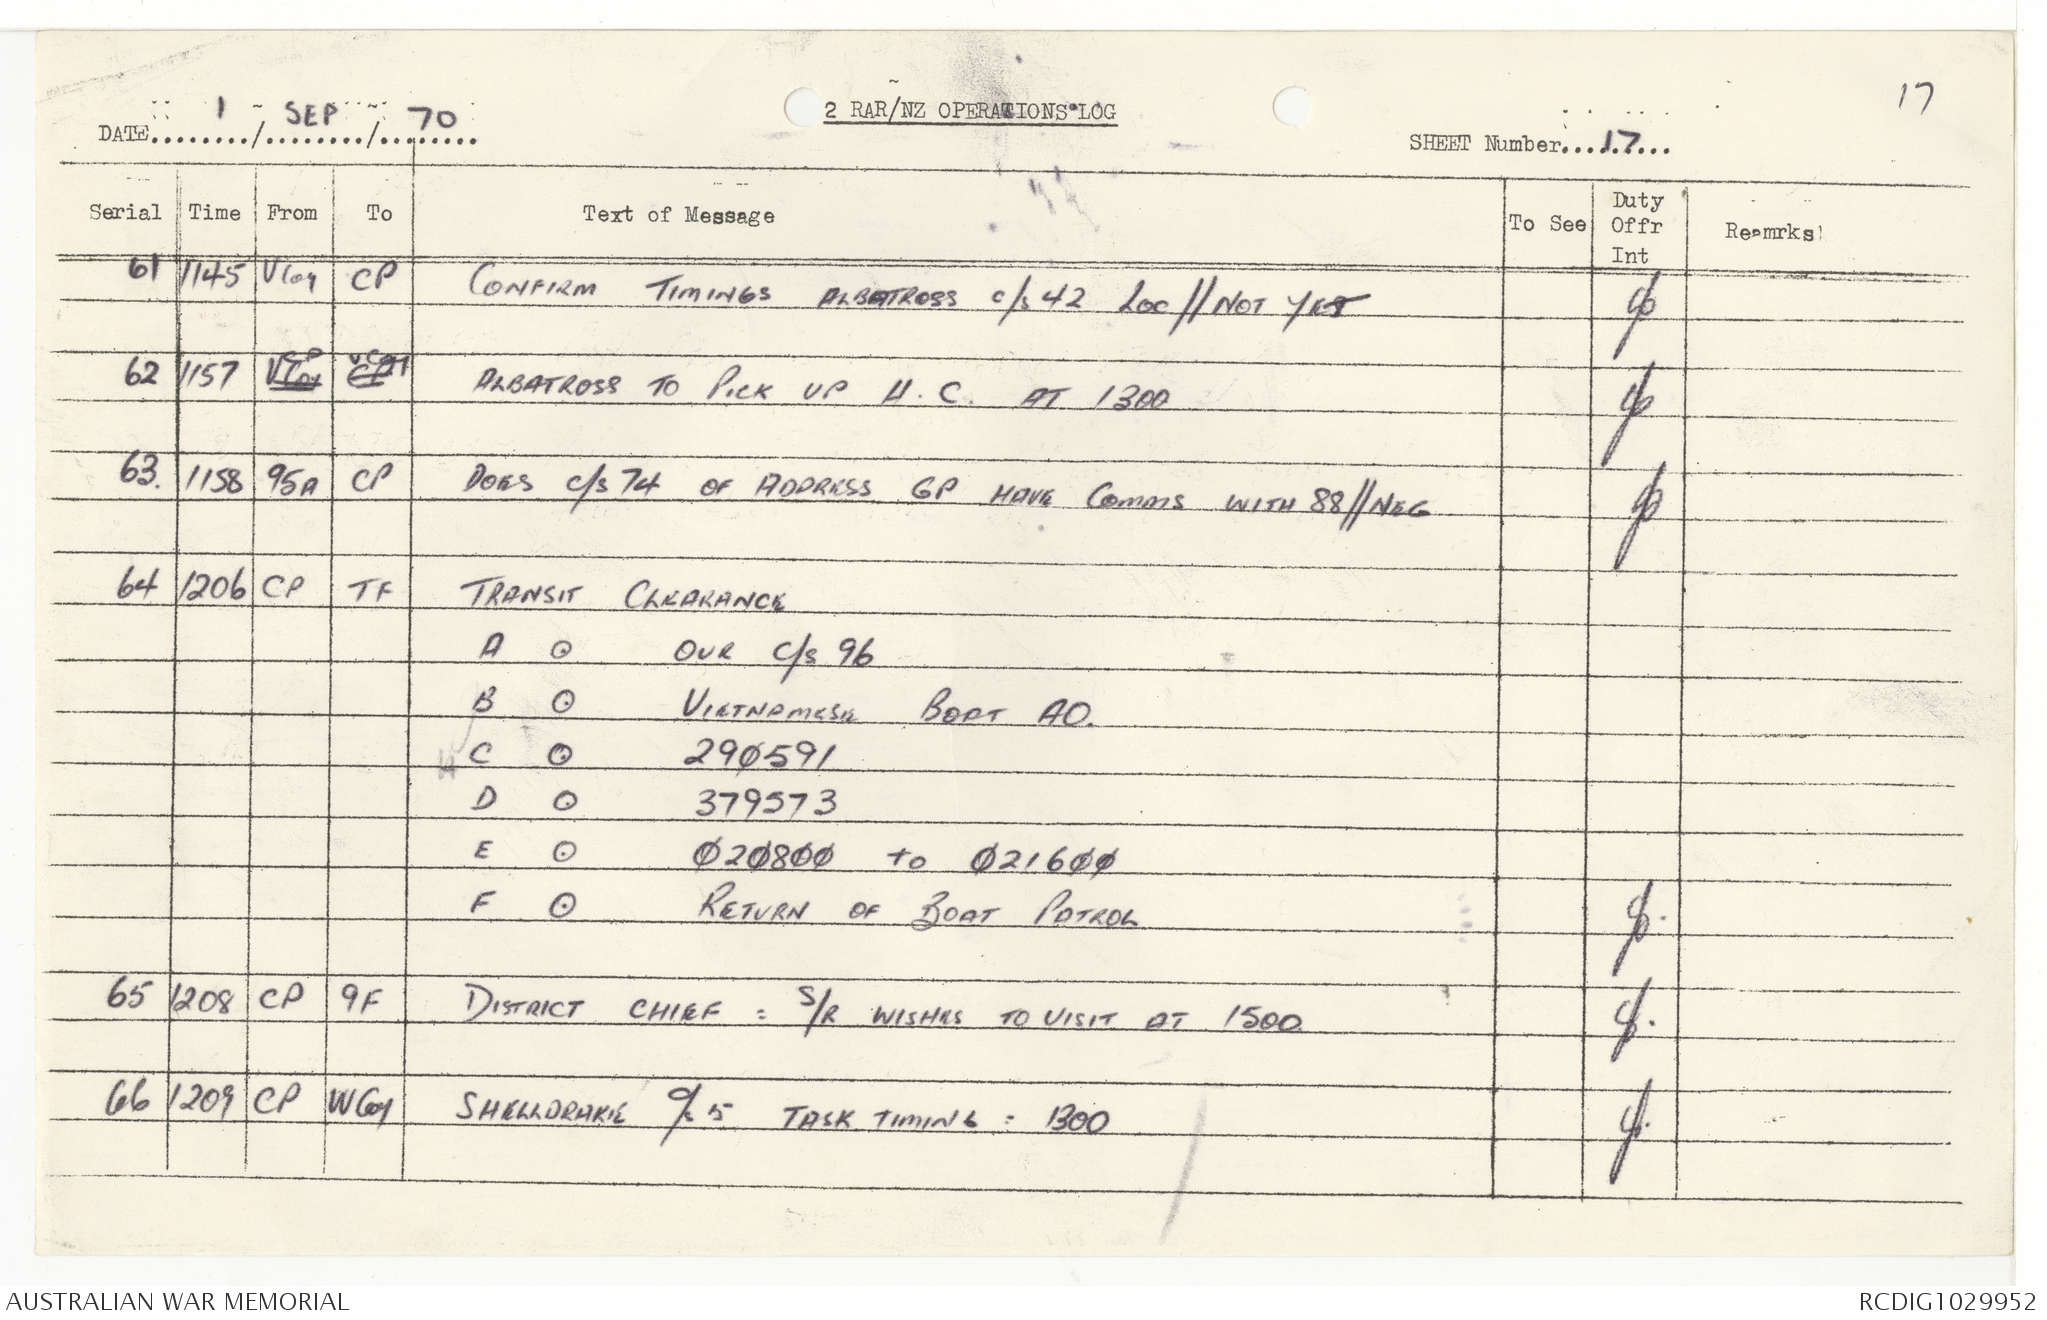 17
2 RAR/NZ OPERATIONS LOG
DATE 1 / SEP / 70
SHEET Number 17
Serial Time From To Text of Message To See Duty Offr Int Reamrks
61 1145 V Coy CP CONFIRM TIMINGS ALBATROSS c/s 42 LOC // NOT YET
62 1157 CP V Coy ALBATROSS TO PICK UP H.C. AT 1300
63. 1158 95A CP DOES c/s 74 OF ADDRESS GP HAVE COMMS WITH 88 // NEG
64 1206 CP TF TRANSIT CLEARANCE
A ⊙ OUR c/s 96
B ⊙ VIETNAMESE BOAT AO.
C ⊙ 290591
D ⊙ 379573
E ⊙ 020800 to 021600
F ⊙ RETURN OF BOAT PATROL
65 1208 CP 9F DISTRICT CHIEF : S/R WISHES TO VISIT AT 1500
66 1209 CP W Coy SHELLDRAKE c/s 5 TASK TIMING : 1300
AUSTRALIAN WAR MEMORIAL
RCDIG1029952